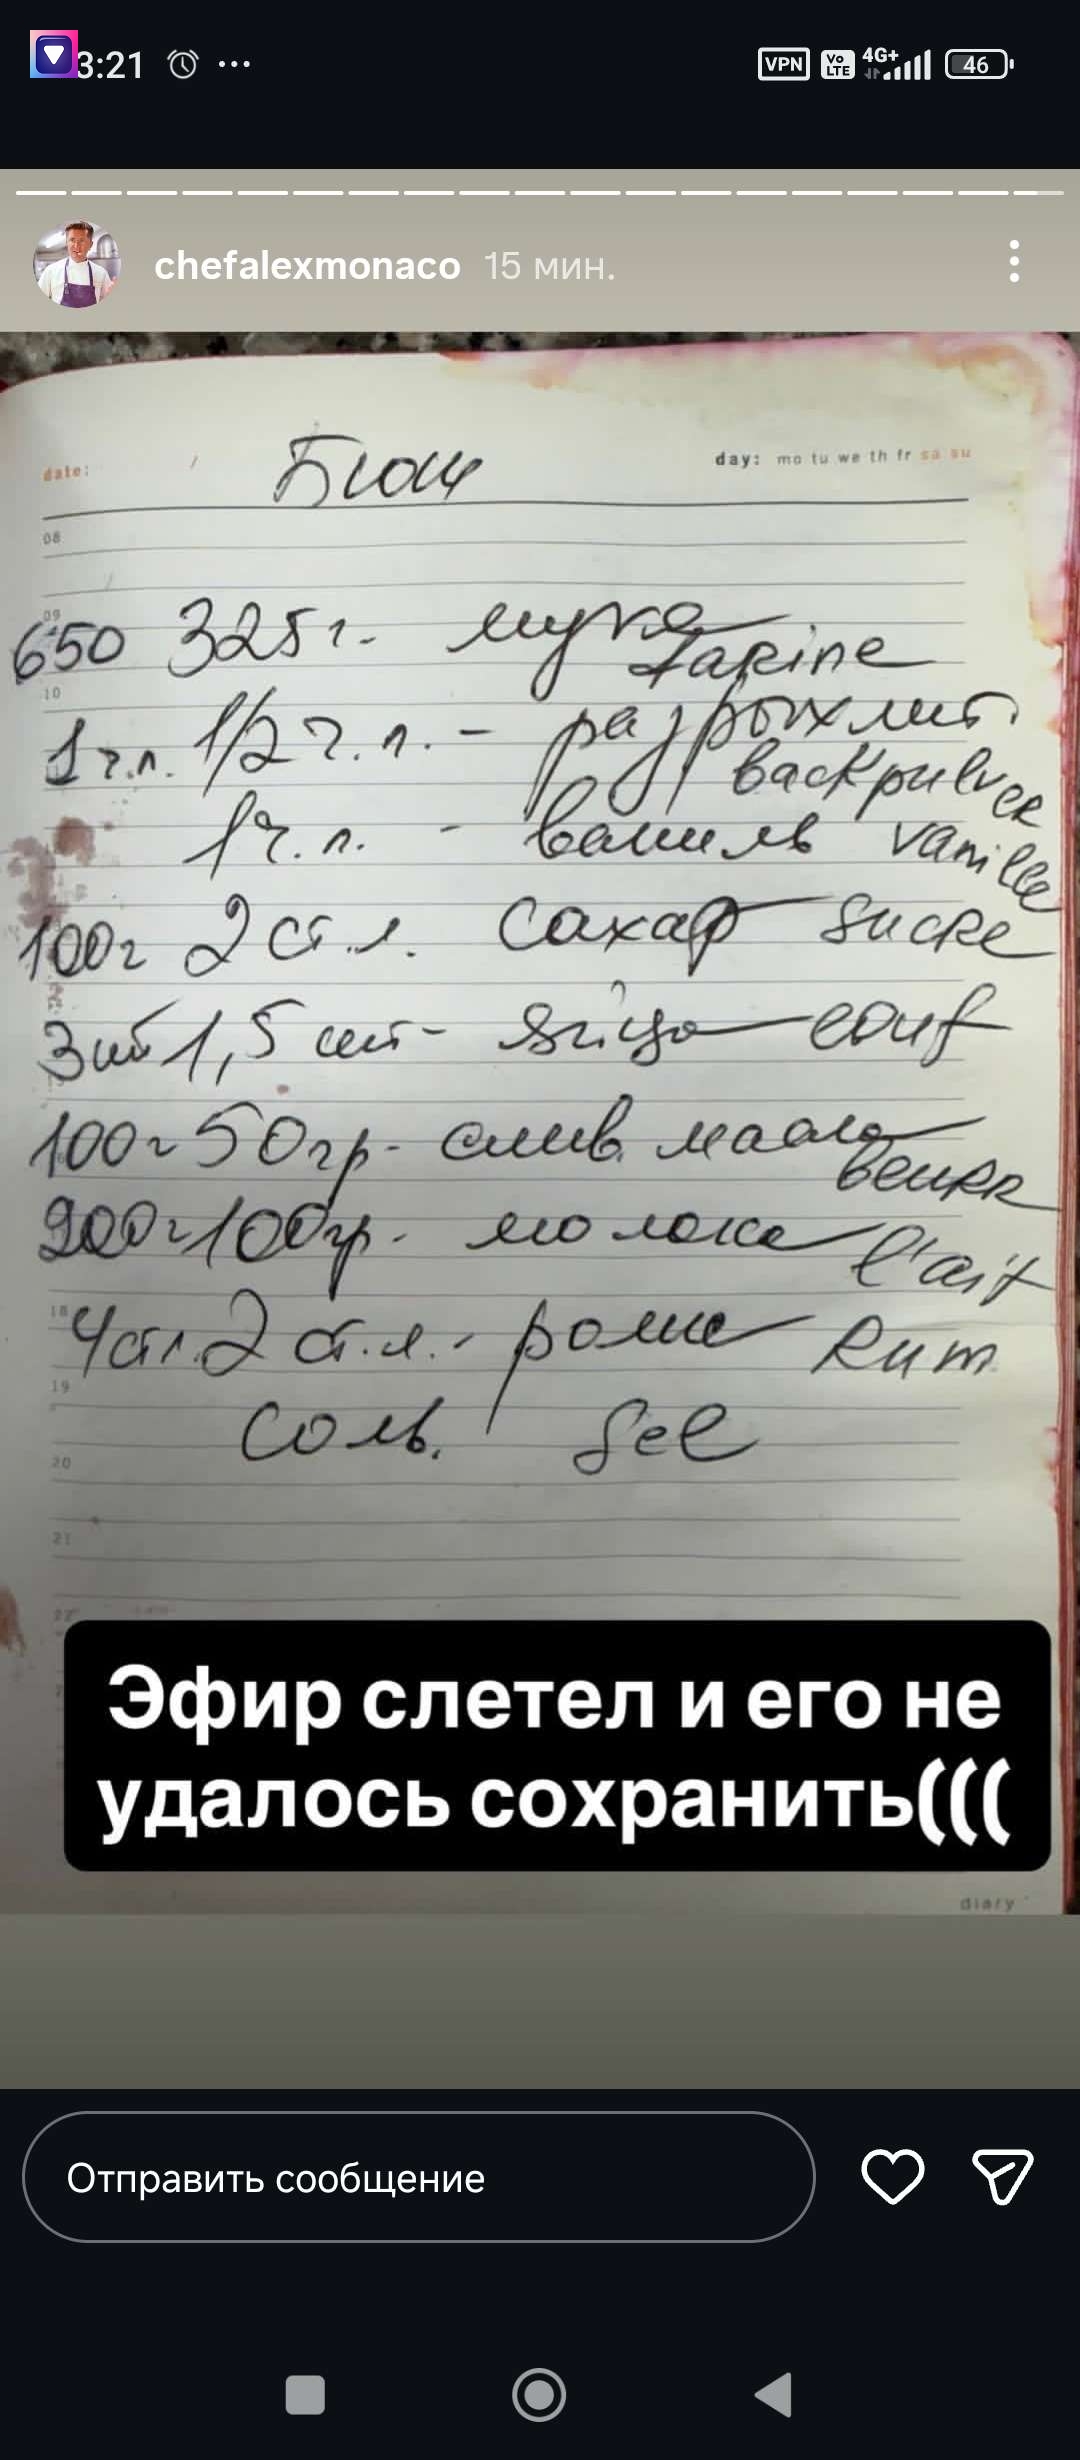 3:21 ... VPN Vo LTE 4G+ 46
chefalexmonaco 15 мин.
date: / Бюш day: mo tu we th fr sa su
08
09
650 325 г. мука farine
10
1 ч.л. 1/2 ч.л. - разрыхлит. backpulver
1 ч.л. - ваниль vanille
100г 2 ст.л. сахар sucre
3 шт 1,5 шт - яйцо eouf
100г 50 гр. - слив. масло beurr
200г 100 гр. - молоко l'ait
18
4 ст.л. 2 ст.л. - рома Rum
19
соль. Sel
20
21
22
Эфир слетел и его не
удалось сохранить(((
diary
Отправить сообщение